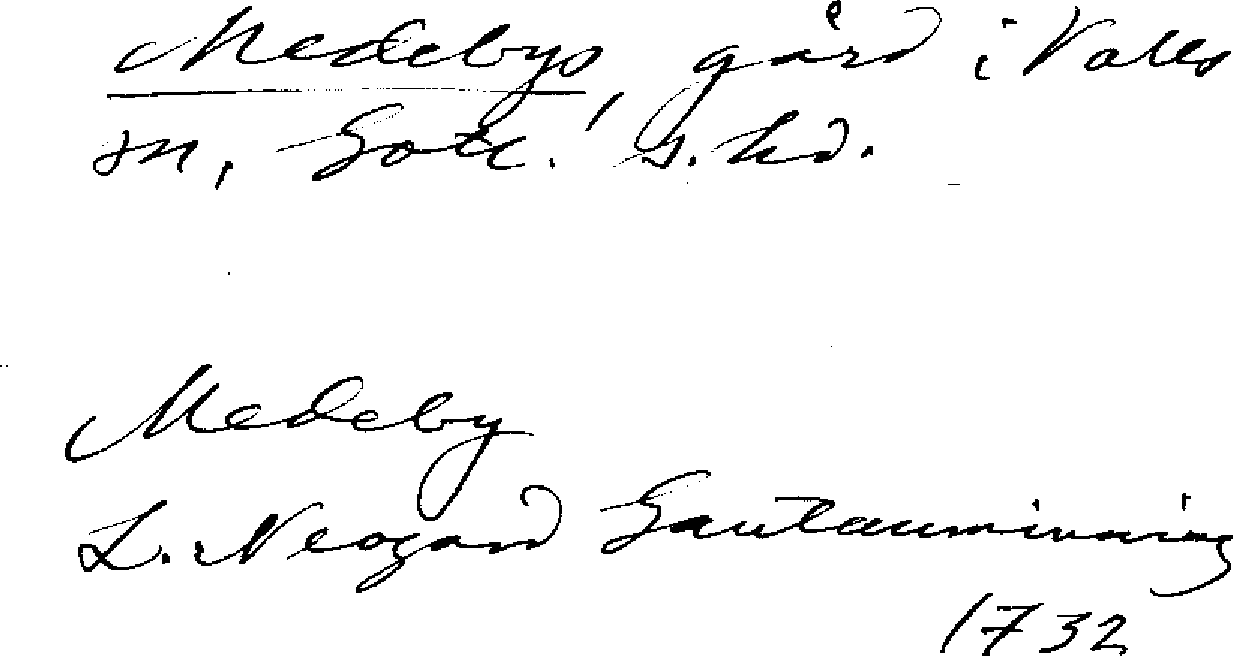 Medebys, gård i Valls
sn, Gotl. s. hd.
Medeby
L. Neogard Gautauminning
1732